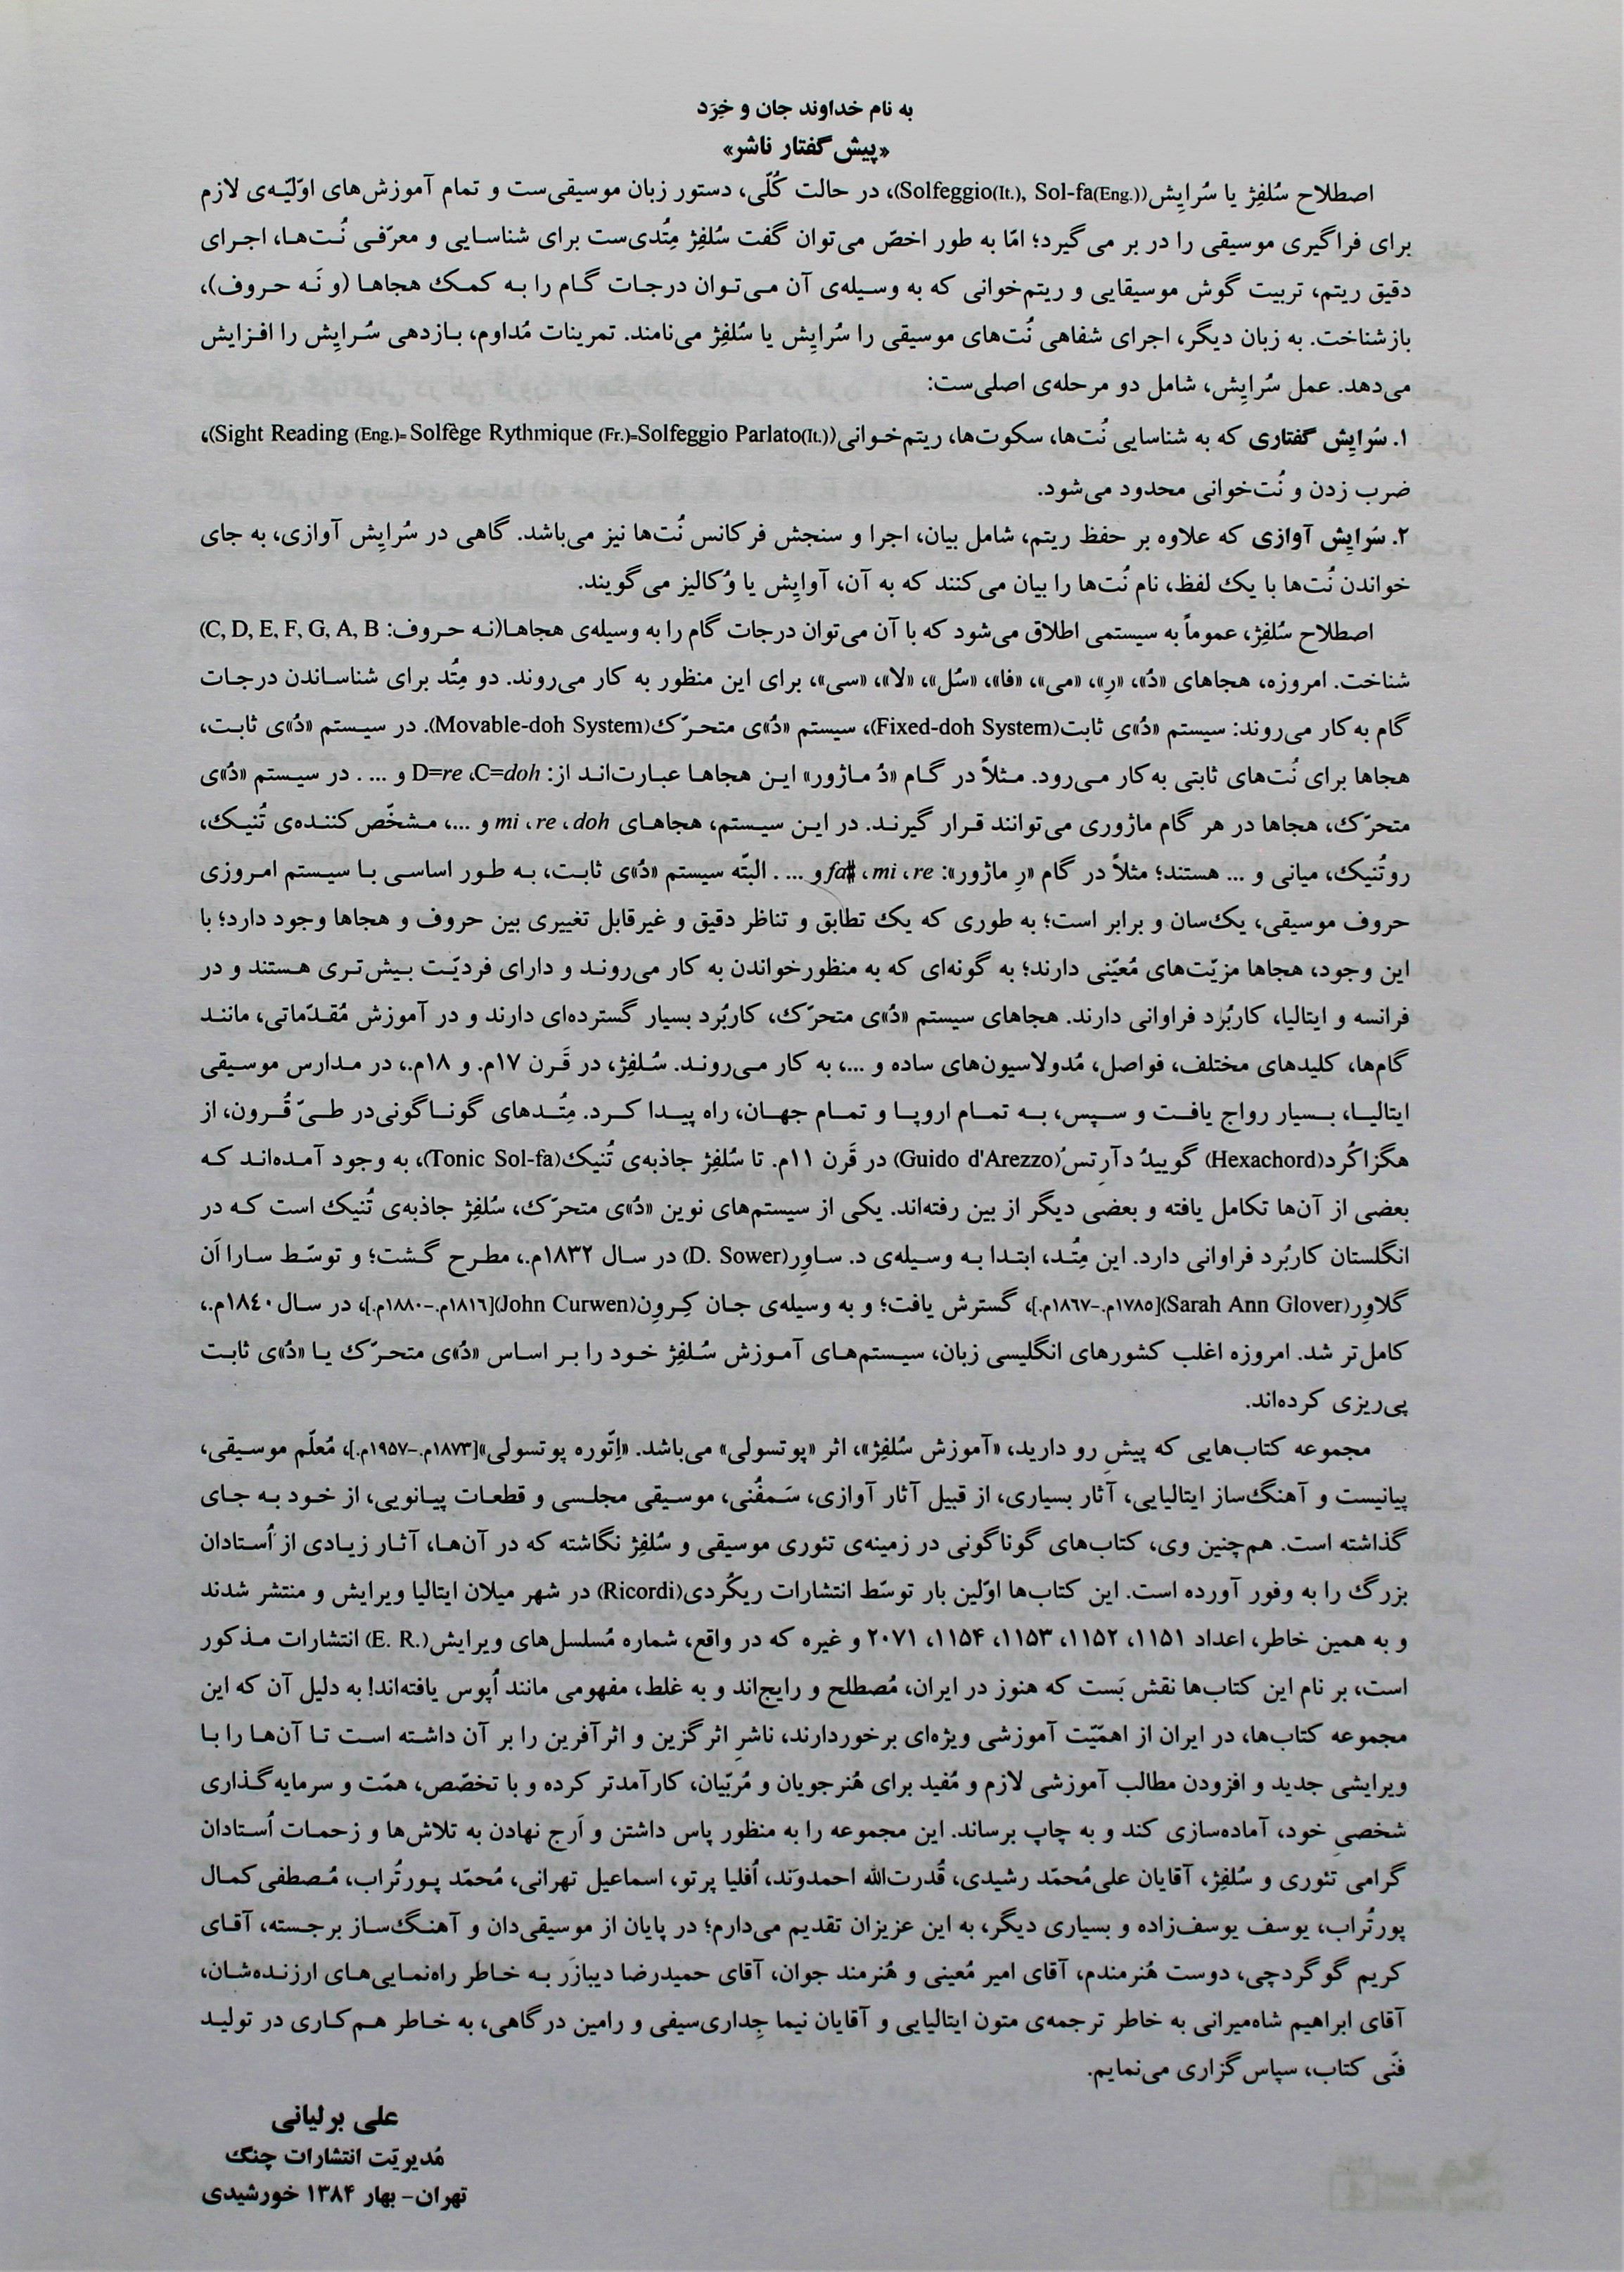 به نام خداوند جان و خِرَد
«پیش‌گفتار ناشر»
اصطلاح سُلفِژ یا سُرایِش(Solfeggio(It.), Sol-fa(Eng.))، در حالت کُلّی، دستور زبان موسیقی‌ست و تمام آموزش‌های اوّلیّه‌ی لازم
برای فراگیری موسیقی را در بر می‌گیرد؛ امّا به طور اخصّ می‌توان گفت سُلفِژ مِتُدی‌ست برای شناسایی و معرّفی نُت‌ها، اجرای
دقیق ریتم، تربیت گوش موسیقایی و ریتم‌خوانی که به وسیله‌ی آن می‌توان درجات گام را به کمک هجاها (و نَه حروف)،
بازشناخت. به زبان دیگر، اجرای شفاهی نُت‌های موسیقی را سُرایِش یا سُلفِژ می‌نامند. تمرینات مُداوم، بازدهی سُرایِش را افزایش
می‌دهد. عمل سُرایِش، شامل دو مرحله‌ی اصلی‌ست:
۱. سُرایِش گفتاری که به شناسایی نُت‌ها، سکوت‌ها، ریتم‌خوانی(Sight Reading (Eng.)= Solfège Rythmique (Fr.)=Solfeggio Parlato(It.))،
ضرب زدن و نُت‌خوانی محدود می‌شود.
۲. سُرایِش آوازی که علاوه بر حفظ ریتم، شامل بیان، اجرا و سنجش فرکانس نُت‌ها نیز می‌باشد. گاهی در سُرایِش آوازی، به جای
خواندن نُت‌ها با یک لفظ، نام نُت‌ها را بیان می‌کنند که به آن، آوایِش یا وُکالیز می‌گویند.
اصطلاح سُلفِژ، عموماً به سیستمی اطلاق می‌شود که با آن می‌توان درجات گام را به وسیله‌ی هجاها(نه حروف: C, D, E, F, G, A, B)
شناخت. امروزه، هجاهای «دُ»، «رِ»، «می»، «فا»، «سُل»، «لا»، «سی»، برای این منظور به کار می‌روند. دو مِتُد برای شناساندن درجات
گام به‌کار می‌روند: سیستم «دُ»ی ثابت(Fixed-doh System)، سیستم «دُ»ی متحرّک(Movable-doh System). در سیستم «دُ»ی ثابت،
هجاها برای نُت‌های ثابتی به‌کار می‌رود. مثلاً در گام «دُ ماژور» این هجاها عبارت‌اند از: C=doh، D=re و ... . در سیستم «دُ»ی
متحرّک، هجاها در هر گام ماژوری می‌توانند قرار گیرند. در این سیستم، هجاهای doh، re، mi و ...، مشخّص‌کننده‌ی تُنیک،
روتُنیک، میانی و ... هستند؛ مثلاً در گام «رِ ماژور»: re، mi، fa# و ... . البتّه سیستم «دُ»ی ثابت، به طور اساسی با سیستم امروزی
حروف موسیقی، یک‌سان و برابر است؛ به طوری که یک تطابق و تناظر دقیق و غیرقابل تغییری بین حروف و هجاها وجود دارد؛ با
این وجود، هجاها مزیّت‌های مُعیّنی دارند؛ به گونه‌ای که به منظورخواندن به کار می‌روند و دارای فردیّت بیش‌تری هستند و در
فرانسه و ایتالیا، کاربُرد فراوانی دارند. هجاهای سیستم «دُ»ی متحرّک، کاربُرد بسیار گسترده‌ای دارند و در آموزش مُقدّماتی، مانند
گام‌ها، کلیدهای مختلف، فواصل، مُدولاسیون‌های ساده و ...، به کار می‌روند. سُلفِژ، در قَرن ۱۷م. و ۱۸م.، در مدارس موسیقی
ایتالیا، بسیار رواج یافت و سپس، به تمام اروپا و تمام جهان، راه پیدا کرد. مِتُدهای گوناگونی‌در طیّ قُرون، از
هگزاکُرد(Hexachord) گوییدُ دآرِتسُ(Guido d'Arezzo) در قَرن ۱۱م. تا سُلفِژ جاذبه‌ی تُنیک(Tonic Sol-fa)، به وجود آمده‌اند که
بعضی از آن‌ها تکامل یافته و بعضی دیگر از بین رفته‌اند. یکی از سیستم‌های نوین «دُ»ی متحرّک، سُلفِژ جاذبه‌ی تُنیک است که در
انگلستان کاربُرد فراوانی دارد. این مِتُد، ابتدا به وسیله‌ی د. ساوِر(D. Sower) در سال ۱۸۳۲م.، مطرح گشت؛ و توسّط سارا اَن
گلاوِر(Sarah Ann Glover)[۱۷۸۵م.-۱۸۶۷م.]، گسترش یافت؛ و به وسیله‌ی جان کِروِن(John Curwen)[۱۸۱۶م.-۱۸۸۰م.]، در سال ۱۸۴۰م.،
کامل‌تر شد. امروزه اغلب کشورهای انگلیسی زبان، سیستم‌های آموزش سُلفِژ خود را بر اساس «دُ»ی متحرّک یا «دُ»ی ثابت
پی‌ریزی کرده‌اند.
مجموعه کتاب‌هایی که پیشِ رو دارید، «آموزش سُلفِژ»، اثر «پوتسولی» می‌باشد. «اِتّوره پوتسولی»[۱۸۷۳م.-۱۹۵۷م.]، مُعلّم موسیقی،
پیانیست و آهنگ‌ساز ایتالیایی، آثار بسیاری، از قبیل آثار آوازی، سَمفُنی، موسیقی مجلسی و قطعات پیانویی، از خود به جای
گذاشته است. هم‌چنین وی، کتاب‌های گوناگونی در زمینه‌ی تئوری موسیقی و سُلفِژ نگاشته که در آن‌ها، آثار زیادی از اُستادان
بزرگ را به وفور آورده است. این کتاب‌ها اوّلین بار توسّط انتشارات ریکُردی(Ricordi) در شهر میلان ایتالیا ویرایش و منتشر شدند
و به همین خاطر، اعداد ۱۱۵۱، ۱۱۵۲، ۱۱۵۳، ۱۱۵۴، ۲۰۷۱ و غیره که در واقع، شماره مُسلسل‌های ویرایش(E. R.) انتشارات مذکور
است، بر نام این کتاب‌ها نقش بَست که هنوز در ایران، مُصطلح و رایج‌اند و به غلط، مفهومی مانند اُپوس یافته‌اند! به دلیل آن که این
مجموعه کتاب‌ها، در ایران از اهمّیّت آموزشی ویژه‌ای برخوردارند، ناشرِ اثرگزین و اثرآفرین را بر آن داشته است تا آن‌ها را با
ویرایشی جدید و افزودن مطالب آموزشی لازم و مُفید برای هُنرجویان و مُربّیان، کارآمدتر کرده و با تخصّص، همّت و سرمایه‌گذاری
شخصیِ خود، آماده‌سازی کند و به چاپ برساند. این مجموعه را به منظور پاس داشتن و اَرج نهادن به تلاش‌ها و زحمات اُستادان
گرامی تئوری و سُلفِژ، آقایان علی‌مُحمّد رشیدی، قُدرت‌الله احمدوَند، اُفلیا پرتو، اسماعیل تهرانی، مُحمّد پورتُراب، مُصطفی‌کمال
پورتُراب، یوسف یوسف‌زاده و بسیاری دیگر، به این عزیزان تقدیم می‌دارم؛ در پایان از موسیقی‌دان و آهنگ‌ساز برجسته، آقای
کریم گوگردچی، دوست هُنرمندم، آقای امیر مُعینی و هُنرمند جوان، آقای حمیدرضا دیبازَر به خاطر راه‌نمایی‌های ارزنده‌شان،
آقای ابراهیم شاه‌میرانی به خاطر ترجمه‌ی متون ایتالیایی و آقایان نیما جِداری‌سیفی و رامین درگاهی، به خاطر هم‌کاری در تولید
فنّی کتاب، سپاس‌گزاری می‌نمایم.
علی برلیانی
مُدیریّت انتشارات چنگ
تهران- بهار ۱۳۸۴ خورشیدی